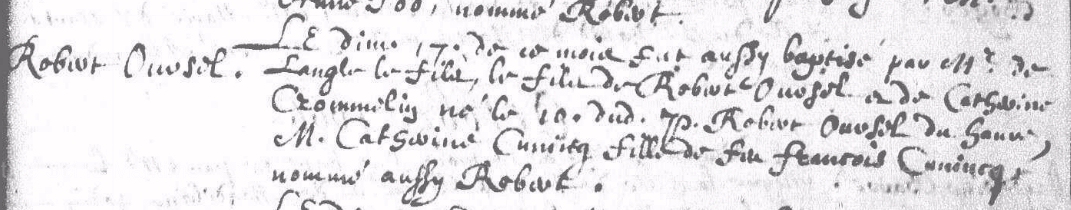 nommé Robert.
Robert Oursel. LE dim. 17. de ce mois fut aussy baptisé par Mr. de
Langle le filz, le filz de Robert Oursel et de Catherine
Crommelin né le 10. dud. P. Robert Oursel du Havre,
M. Catherine Cunincq fille de feu francois Cunincq,
nommé aussy Robert.